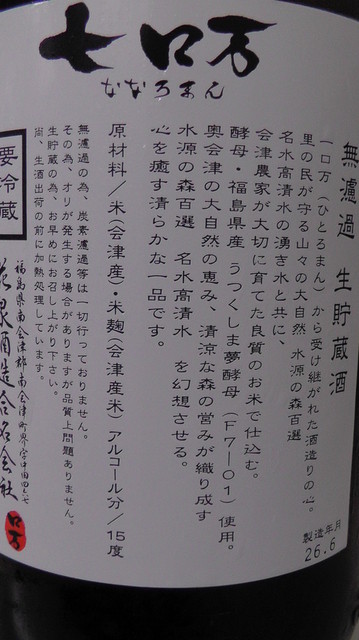 七口万
ななろまん
無濾過 生貯蔵酒
一口万（ひとろまん）から受け継がれた酒造りの心。
里の民が守る山々の大自然 水源の森百選
名水高清水の湧き水と共に、
会津農家が大切に育てた良質のお米で仕込む。
酵母・福島県産 うつくしま夢酵母（F7―01）使用。
奥会津の大自然の恵み、清涼な森の営みが織り成す
水源の森百選 名水高清水 を幻想させる。
心を癒す清らかな一品です。
原材料／米（会津産）・米麹（会津産米）アルコール分／15度
無濾過の為、炭素濾過等は一切行っておりません。
その為、オリが発生する場合がありますが品質上問題ありません。
生貯蔵の為、お早めにお召し上がり下さい。
尚、生酒出荷の前に加熱処理しています。
要冷蔵
福島県南会津郡南会津町界字中田646-1
花泉酒造合名会社
口万
製造年月
26.6